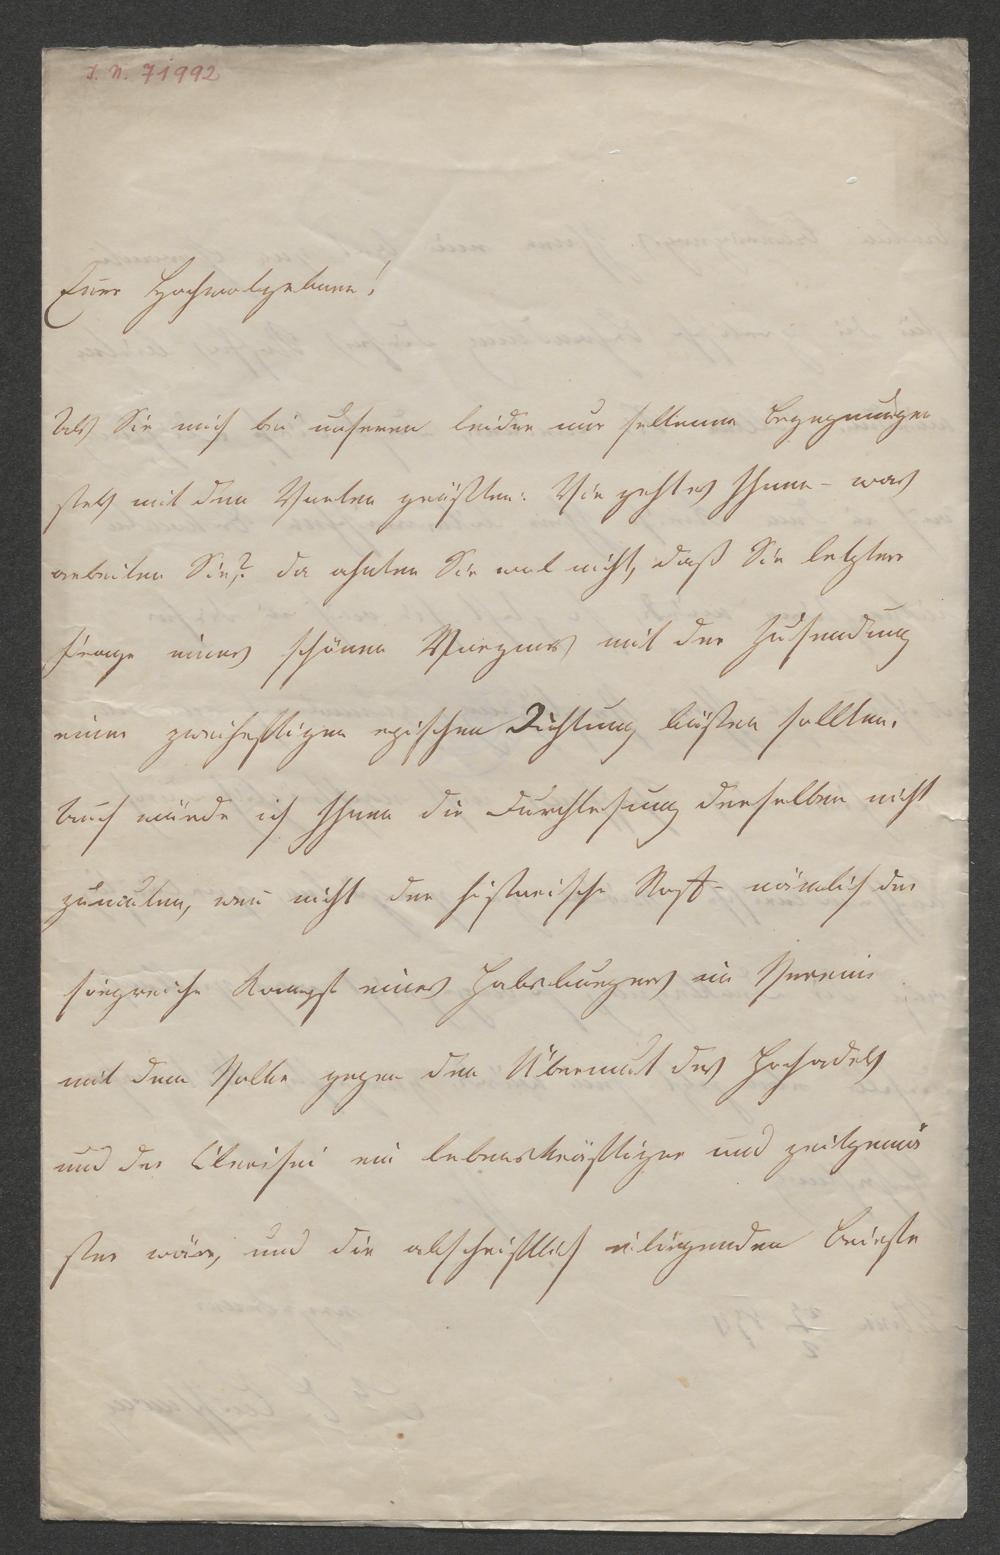 I. N. 71992
Euer Hochwolgeboren!
Als Sie mich bei unseren leider nur seltenen Begegnungen
stets mit den Worten grüßten: Wie geht es Ihnen – was
arbeiten Sie? da ahnten Sie wol nicht, daß Sie letztere
Frage eines schönen Morgens mit der Zusendung
einer zweiheftigen epischen Dichtung büßen sollten.
Auch würde ich Ihnen die Durchlesung derselben nicht
zumuten, wen nicht der historische Stoff – nämlich der
siegreiche Kampf eines Habsburgers im Verein
mit dem Volke gegen den Übermut des Hochadels
und der Clerisei ein lebenskräftiger und zeitgemäs
ster wäre, und die abschriftlich beiliegenden Briefe